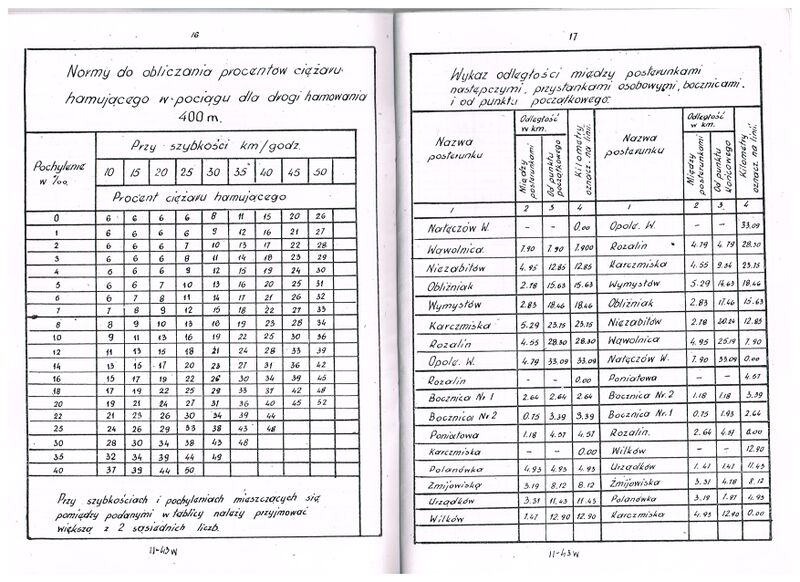 16
Normy do obliczania procentów ciężaru
hamującego w pociągu dla drogi hamowania
400 m.
Pochylenie w ‰
Przy szybkości km/godz.
10 15 20 25 30 35 40 45 50
Procent ciężaru hamującego
0 6 6 6 6 8 11 15 20 26
1 6 6 6 6 9 12 16 21 27
2 6 6 6 7 10 13 17 22 28
3 6 6 6 8 11 14 18 23 29
4 6 6 6 9 12 15 19 24 30
5 6 6 7 10 13 16 20 25 31
6 6 7 8 11 14 17 21 26 32
7 7 8 9 12 15 18 22 27 33
8 8 9 10 13 16 19 23 28 34
10 9 11 13 16 19 22 25 30 36
12 11 13 15 18 21 24 28 33 39
14 13 15 17 20 23 27 31 36 42
16 15 17 19 22 26 30 34 39 45
18 17 19 22 25 29 33 37 42 48
20 19 21 24 27 31 36 40 45 52
22 21 23 26 30 34 39 44
25 24 26 29 33 38 43 48
30 28 30 34 38 43 48
35 32 34 39 44 49
40 37 39 44 50
Przy szybkościach i pochyleniach mieszczących się
pomiędzy podanymi w tablicy należy przyjmować
większą z 2 sąsiednich liczb.
11-43w
17
Wykaz odległości między posterunkami
następczymi, przystankami osobowymi, bocznicami.
i od punktu początkowego:
Nazwa posterunku
Odległość w km.
Między posterunkami
Od punktu początkowego
Kilometry oznacz. na linii.
Nazwa posterunku
Odległość w km.
Między posterunkami
Od punktu końcowego
Kilometry oznacz. na linii.
1 2 3 4 1 2 3 4
Nałęczów W. – – 0.00 Opole. W. – – 33.09
Wąwolnica. 7.90 7.90 7.900 Rozalin 4.79 4.79 28.30
Niezabitów 4.95 12.85 12.85 Karczmiska 4.55 9.34 23.75
Obliźniak 2.78 15.63 15.63 Wymysłów 5.29 14.63 18.46
Wymysłów 2.83 18.46 18.46 Obliźniak 2.83 17.46 15.63
Karczmiska 5.29 23.75 23.75 Niezabitów 2.78 20.24 12.85
Rozalin 4.55 28.30 28.30 Wąwolnica 4.95 25.19 7.90
Opole. W. 4.79 33.09 33.09 Nałęczów W. 7.90 33.09 0.00
Rozalin – – 0.00 Poniatowa – – 4.57
Bocznica Nr 1 2.64 2.64 2.64 Bocznica Nr. 2 1.18 1.18 3.39
Bocznica Nr 2 0.75 3.39 3.39 Bocznica Nr. 1 0.75 1.93 2.64
Poniatowa 1.18 4.57 4.57 Rozalin. 2.64 4.57 0.00
Karczmiska – – 0.00 Wilków – – 12.90
Polanówka 4.93 4.93 4.93 Urządków 1.47 1.47 11.43
Żmijowiska 3.19 8.12 8.12 Żmijowiska 3.31 4.78 8.12
Urządków 3.31 11.43 11.43 Polanówka 3.19 7.97 4.93
Wilków 1.47 12.90 12.90 Karczmiska 4.93 12.90 0.00
11-43w